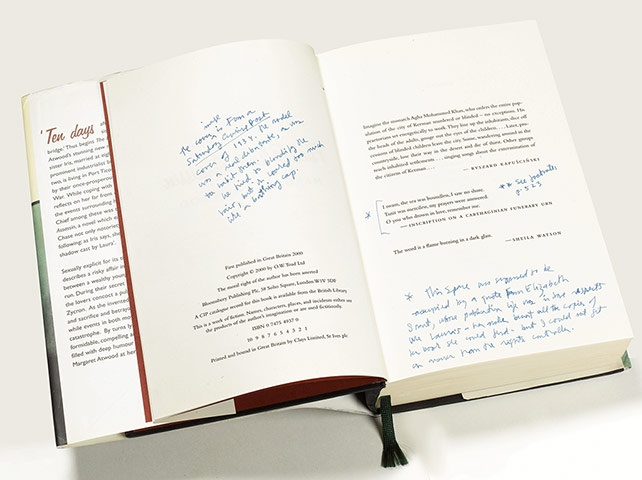 'Ten days
bridge.' Thus begins
Atwood's stunning new
sister Iris, married at eigh
prominent industrialist b
two, is living in Port Tico
by their once-prosperous
reflects on her far from
the events surrounding
Chief among these was
Assassin, a novel which e
Chase not only notoriety
following: as Iris says, she
shadow cast by Laura'.
Sexually explicit for its
describes a risky affair in
between a wealthy young
run. During their secret
the lovers concoct a pul
Zycron. As the invented
and sacrifice and betrayal
while events in both mo
catastrophe. By turns ly
formidable, compelling a
filled with deep humour
Margaret Atwood at her
The cover is from a
Saturday Evening Post
cover of 1934. The model
was a real debutante, as was
He tried to
hair, but it looked too much
like a bathing cap.
First published in Great Britain 2000
Copyright © 2000 by O.W. Toad Ltd
The moral right of the author has been asserted
Bloomsbury Publishing Plc, 38 Soho Square, London W1V 5DF
A CIP catalogue record for this book is available from the British Library
This is a work of fiction. Names, characters, places, and incidents either are
the products of the author's imagination or are used fictitiously.
ISBN 0 7475 4937 0
10 9 8 7 6 5 4 3 2 1
Printed and bound in Great Britain by Clays Limited, St Ives plc
Imagine the monarch Agha Mohammed Khan, who orders the entire pop-
ulation of the city of Kerman murdered or blinded – no exceptions. His
praetorians set energetically to work. They line up the inhabitants, slice off
the heads of the adults, gouge out the eyes of the children. . . . Later, pro-
cessions of blinded children leave the city. Some, wandering around in the
countryside, lose their way in the desert and die of thirst. Other groups
reach inhabited settlements . . . singing songs about the extermination of
the citizens of Kerman. . . .
– RYSZARD KAPUŚCIŃSKI
** See footnotes
p 523
* I swam, the sea was boundless, I saw no shore.
Tanit was merciless, my prayers were answered.
O you who drown in love, remember me.
– INSCRIPTION ON A CARTHAGINIAN FUNERARY URN
The word is a flame burning in a dark glass.
– SHEILA WATSON
* This space was supposed to be
occupied by a quote from Elizabeth
Smart, whose publication
her mother burnt all the copies of
the book she could find – but I could not get
an answer from the rights controller.